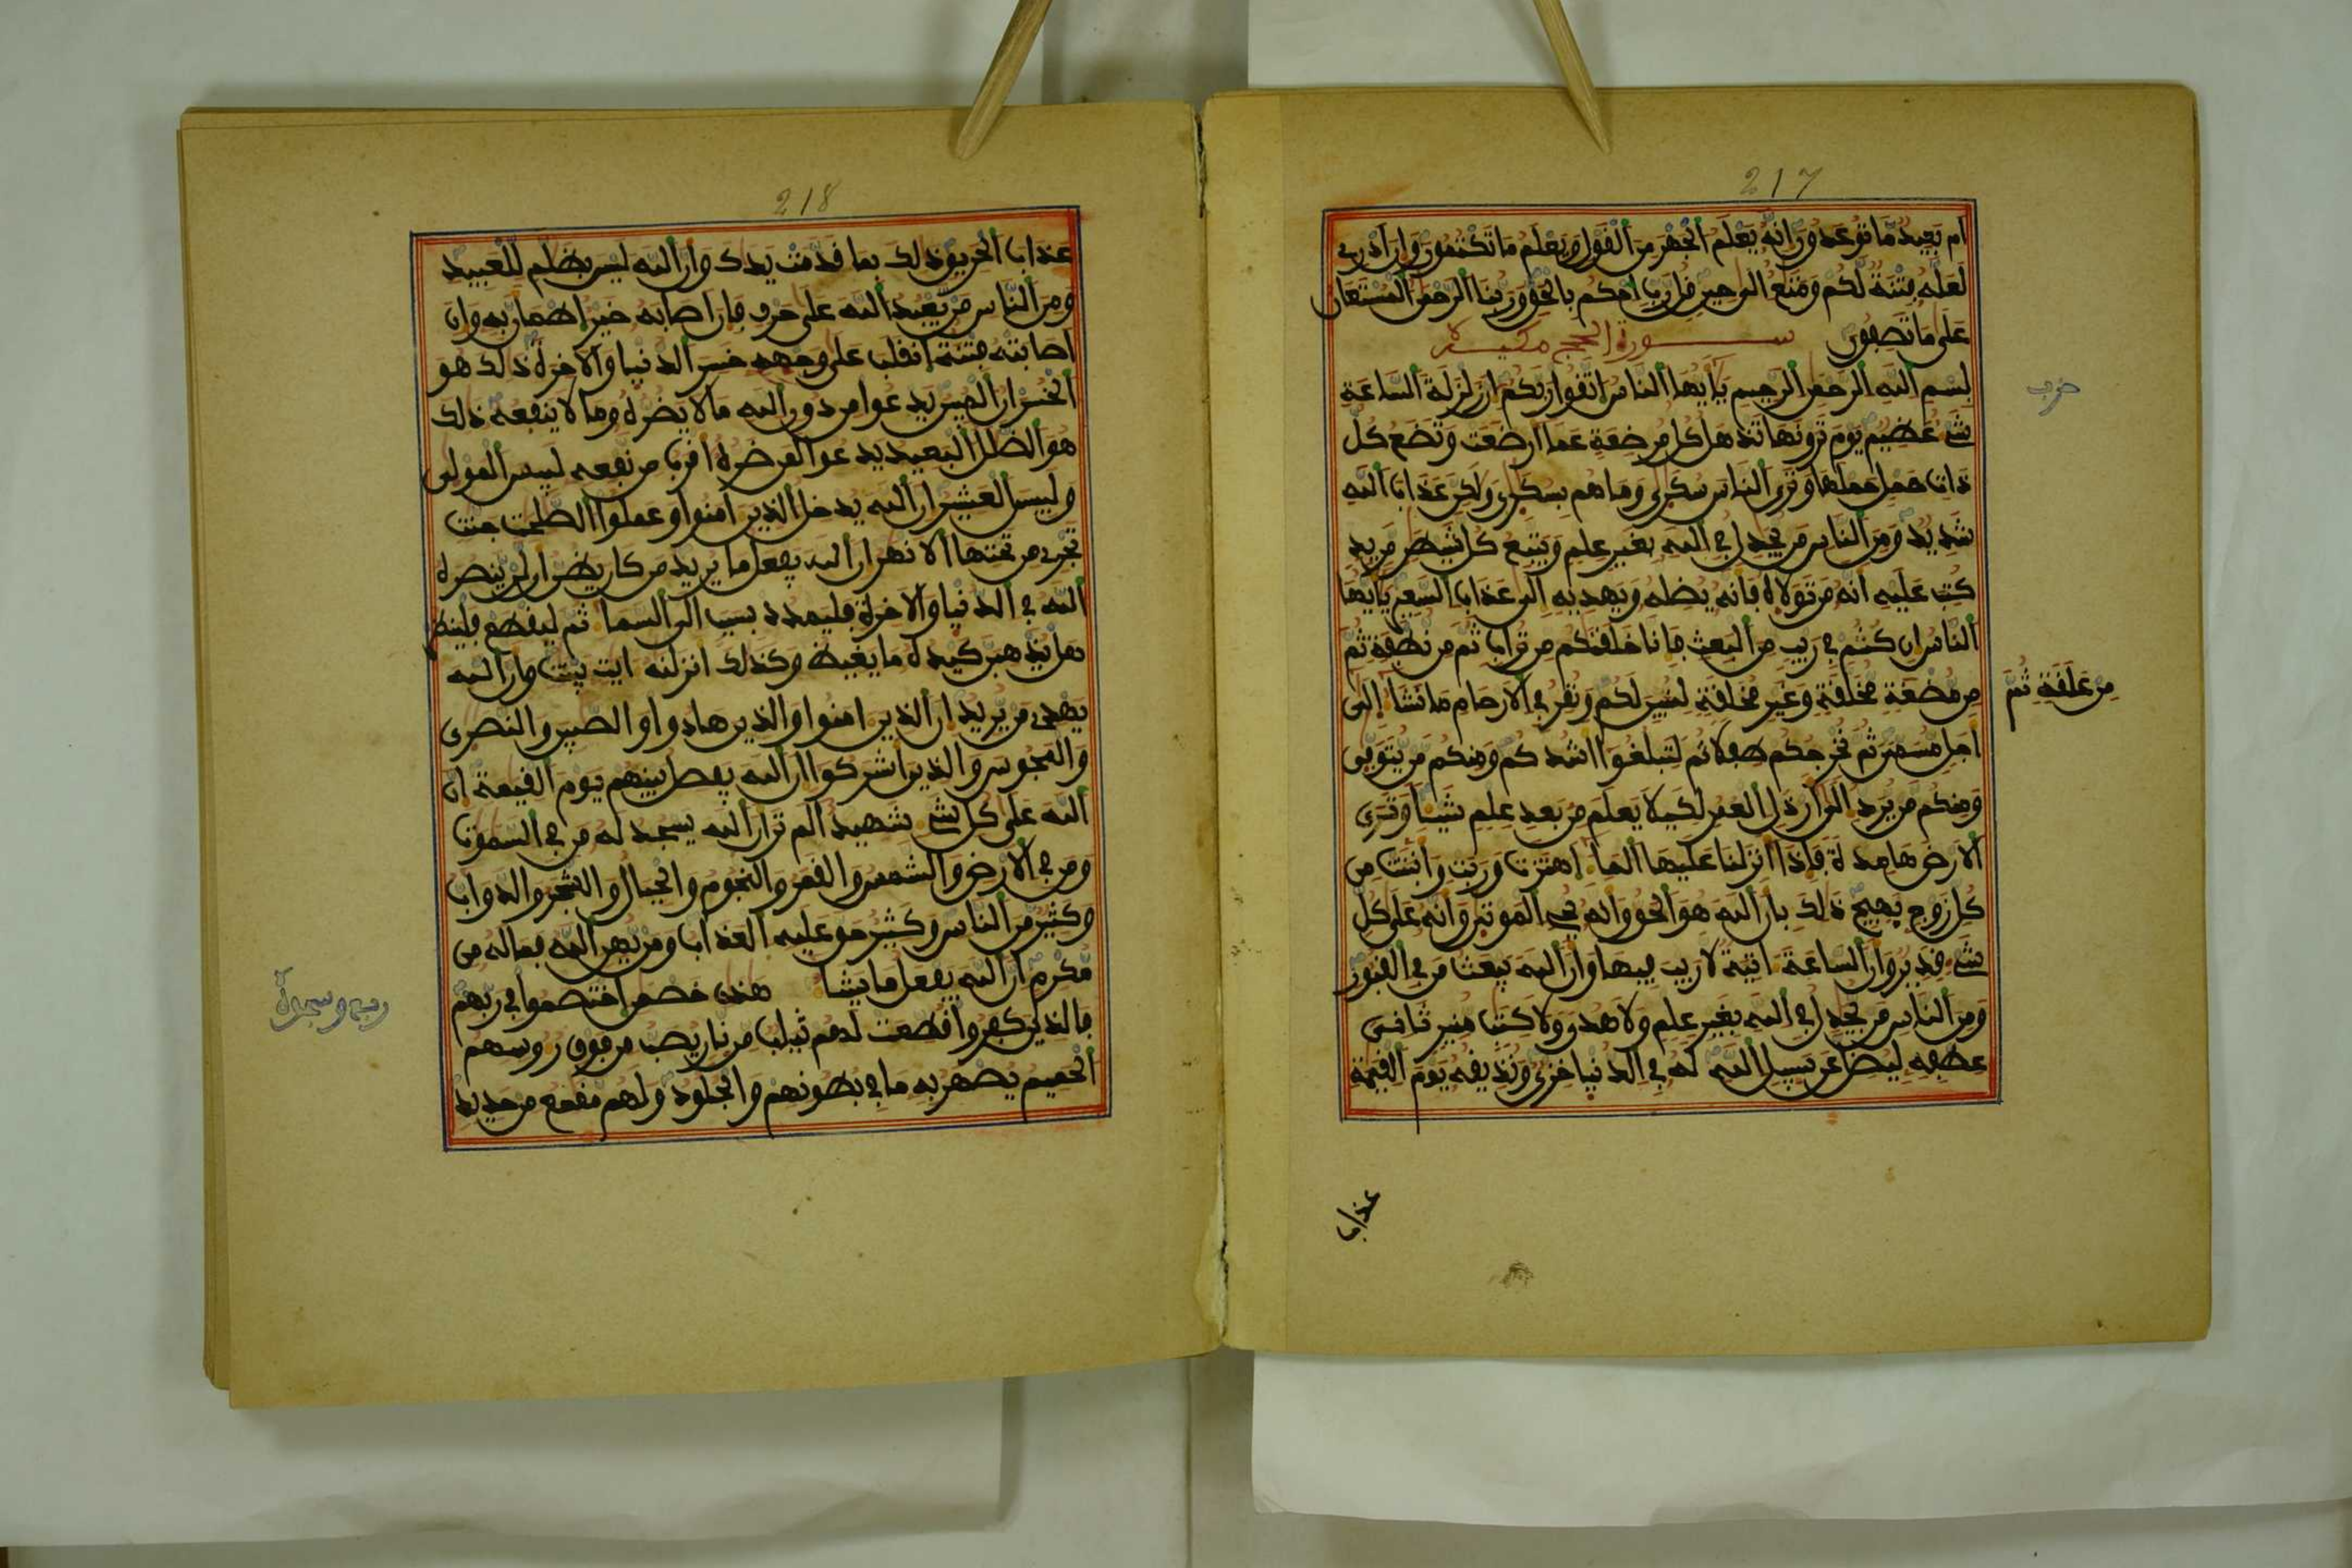 217
ام بعيد ما توعدون وانه يعلم الجهر من القول ويعلم ما تكتمون وان ادرى
لعله فتنة لكم ومتع الى حين قل رب احكم بالحق وربنا الرحمن المستعان
على ما تصفون سورة الحج مكية
بسم الله الرحمن الرحيم يايها الناس اتقوا ربكم ان زلزلة الساعة
شىء عظيم يوم ترونها تذهل كل مرضعة عما ارضعت وتضع كل
ذات حمل حملها وترى الناس سكرى وما هم بسكرى ولكن عذاب الله
شديد ومن الناس من يجدل في الله بغير علم ويتبع كل شيطن مريد
كتب عليه انه من تولاه فانه يضله ويهديه الى عذاب السعير يايها
الناس ان كنتم في ريب من البعث فانا خلقنكم من تراب ثم من نطفة ثم
من علقة ثم
من مضغة مخلقة وغير مخلقة لنبين لكم ونقر في الارحام ما نشا الى
اجل مسمى ثم نخرجكم طفلا ثم لتبلغوا اشدكم ومنكم من يتوفى
ومنكم من يرد الى ارذل العمر لكيلا يعلم من بعد علم شيا وترى
الارض هامدة فاذا انزلنا عليها الما اهتزت وربت وانبتت من
كل زوج بهيج ذلك بان الله هو الحق وانه يحى الموتى وانه على كل
شىء قدير وان الساعة اتية لا ريب فيها وان الله يبعث من في القبور
ومن الناس من يجدل في الله بغير علم ولا هدى ولا كتب منير ثانى
عطفه ليضل عن سبيل الله له في الدنيا خزى ونذيقه يوم القيمة
حزب
عذاب
218
عذاب الحريق ذلك بما قدمت يدك وان الله ليس بظلم للعبيد
ومن الناس من يعبد الله على حرف فان اصابه خير اطمان به وان
اصابته فتنة انقلب على وجهه خسر الدنيا والاخرة ذلك هو
الخسران المبين يدعوا من دون الله ما لا يضره وما لا ينفعه ذلك
هو الضلل البعيد يدعوا لمن ضره اقرب من نفعه لبيس المولى
ولبيس العشير ان الله يدخل الذين امنوا وعملوا الصلحت جنت
تجرى من تحتها الانهر ان الله يفعل ما يريد من كان يظن ان لن ينصره
الله في الدنيا والاخرة فليمدد بسبب الى السما ثم ليقطع فلينظر
هل يذهبن كيده ما يغيظ وكذلك انزلنه ايت بينت وان الله
يهدى من يريد ان الذين امنوا والذين هادوا والصبين والنصرى
والمجوس والذين اشركوا ان الله يفصل بينهم يوم القيمة ان
الله على كل شىء شهيد الم تر ان الله يسجد له من في السموت
ومن في الارض والشمس والقمر والنجوم والجبال والشجر والدواب
وكثير من الناس وكثير حق عليه العذاب ومن يهن الله فما له من
مكرم ان الله يفعل ما يشا هذن خصمن اختصموا في ربهم
فالذين كفروا قطعت لهم ثياب من نار يصب من فوق روسهم
الحميم يصهر به ما في بطونهم والجلود ولهم مقمع من حديد
ربع وسجدة